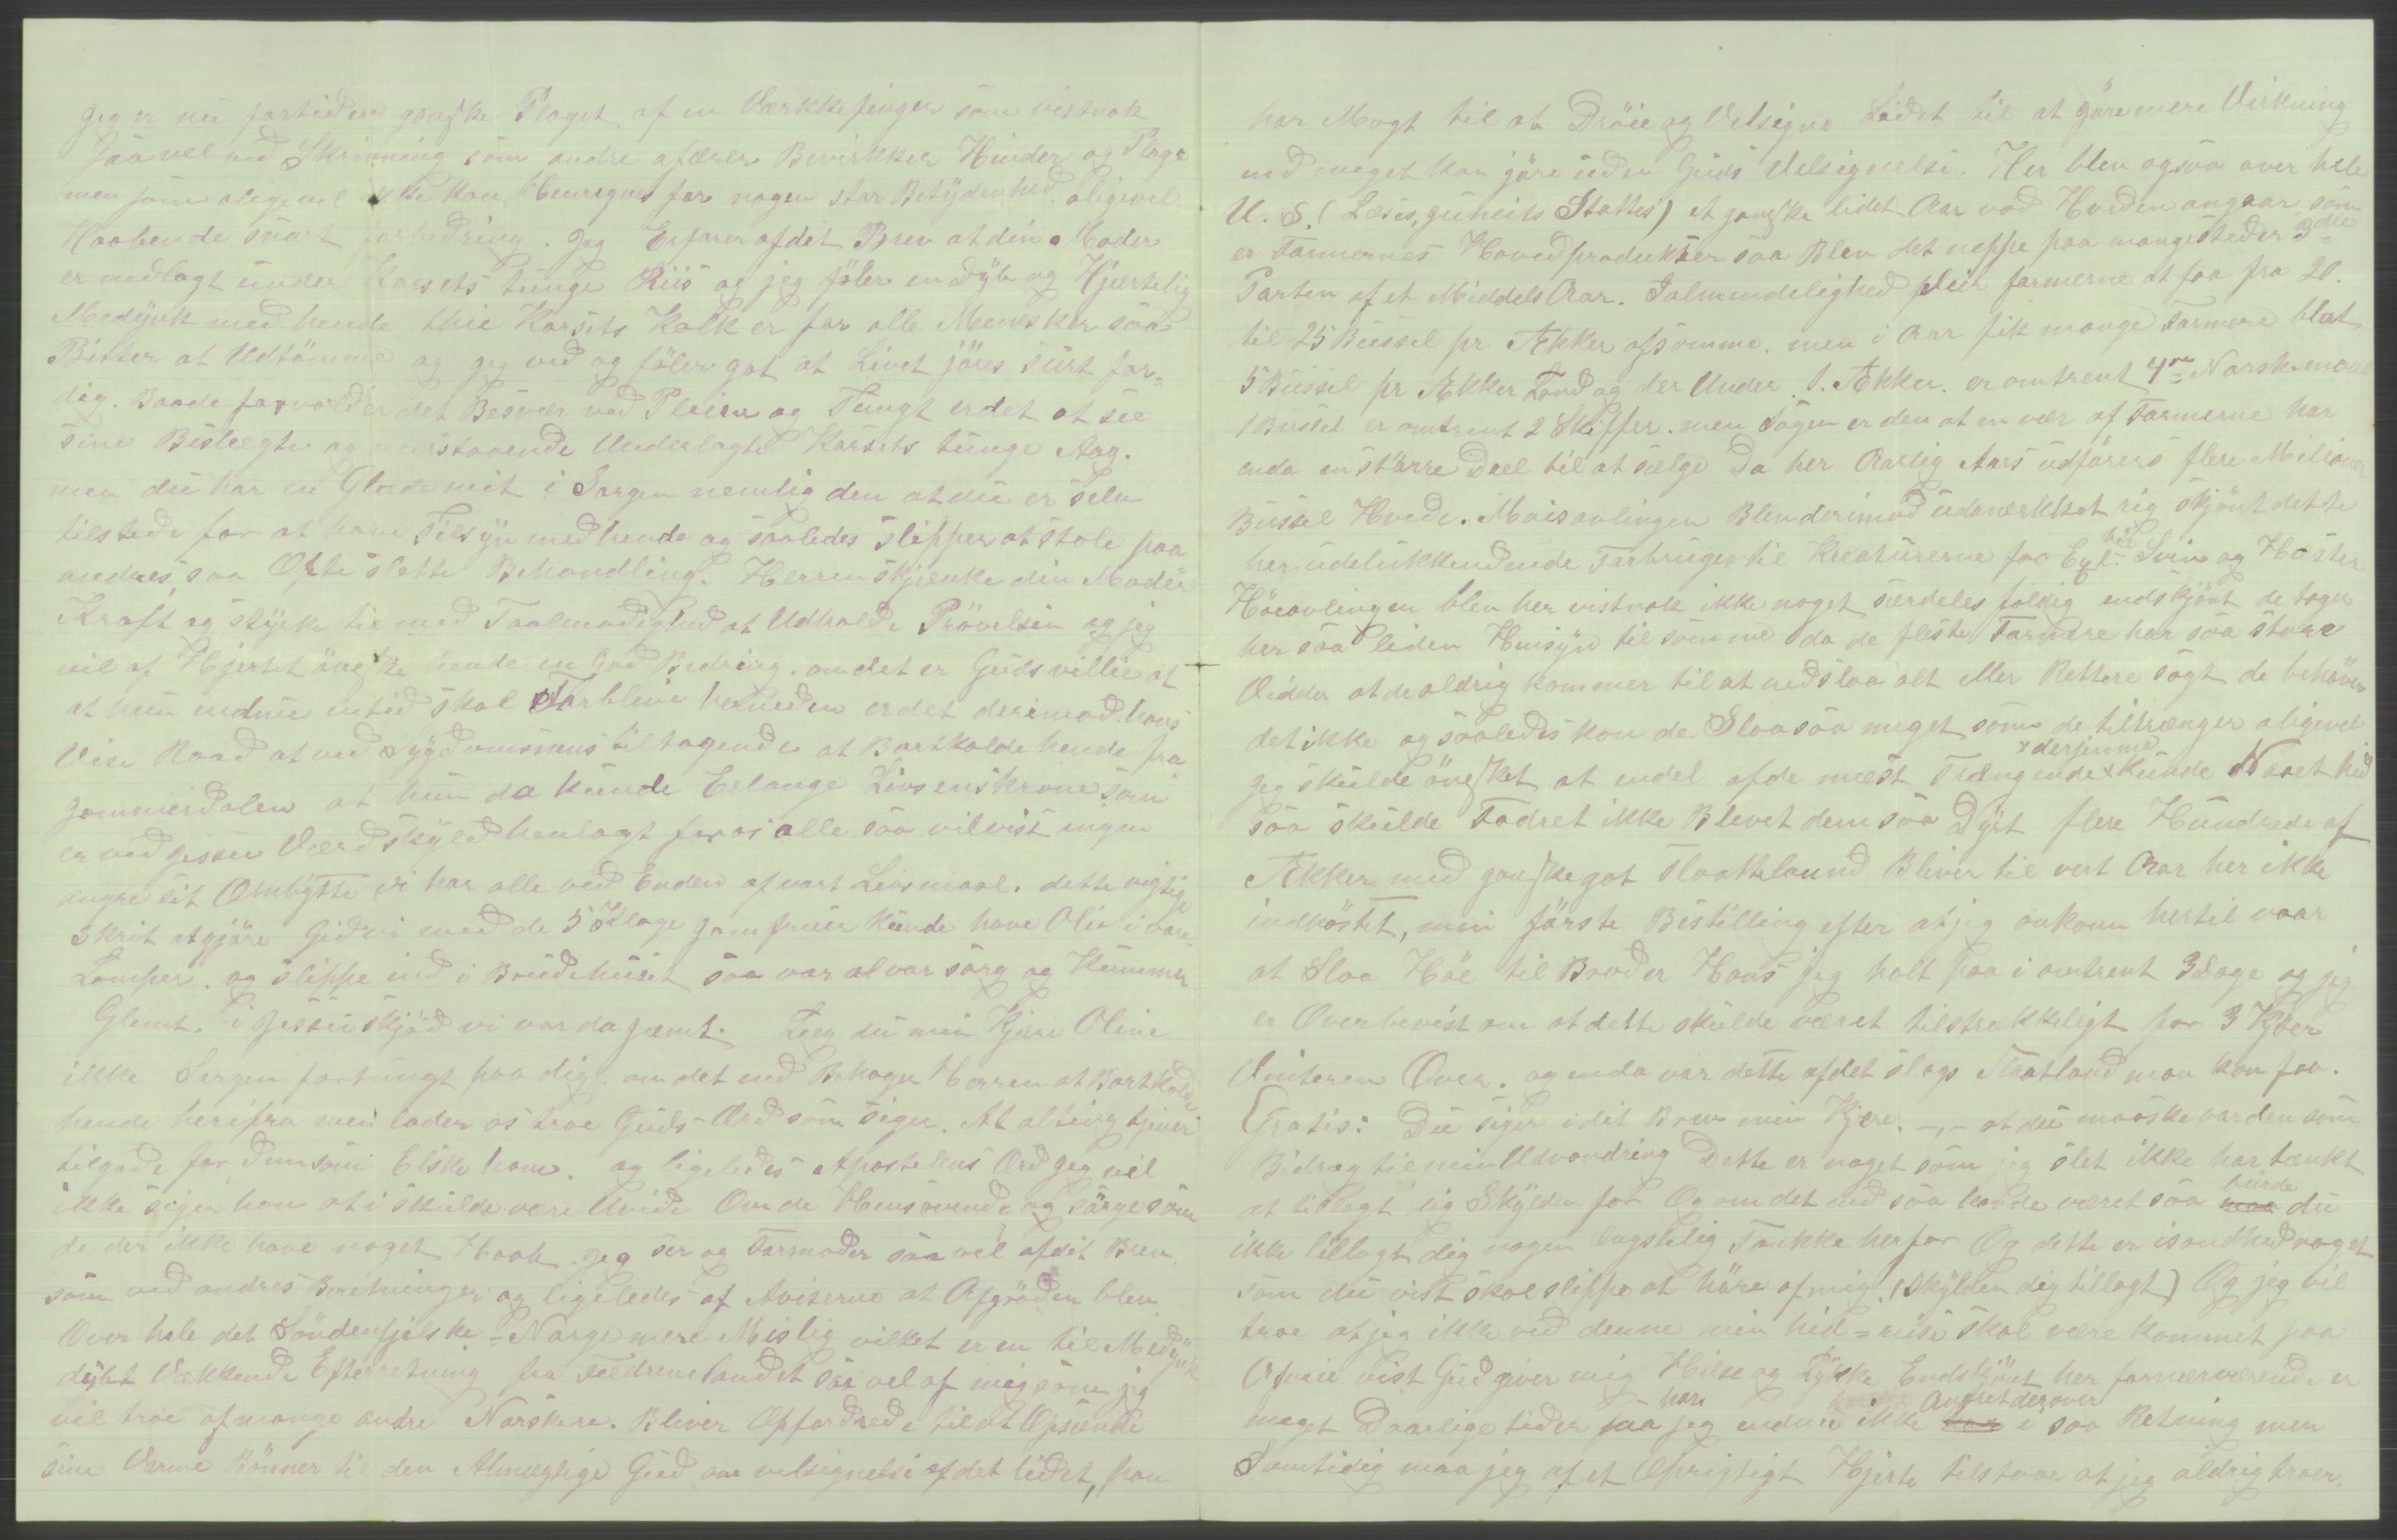 Jeg er nu fortiden ganske Plaget af en Værkkefinger som vistnok
saavel ved Skrivning som andre afærer Bevirkker Hinder og Plage
men som aligevel ikke kan Henregnes for nogen stor Betydenhed, aligevel
Haabende snart forbedring. Jeg Erfarer af dit Brev at din Moder
er nedlagt under Korsets tunge Riis og jeg föler en dyb og Hjærtelig
Medynk med hende thie Korsets Kalk er for alle Menesker saa
Bitter at Udtömme og jeg ved og föler got at Livet jöres surt for
dig. Baade forvolder det Besvær ved Pleien og Tungt er det at see
sine Beslægte og nærstaaende Underlagte Korsets tunge Aag.
men du har en Glæde mit i Sorgen nemlig den at du er selv
tilstede for at have Tilsyn med hende og saaledes slipper at stole paa
andres, saa Ofte slette Behandling. Herren skjænke din Moder
Kraft og styrke til med Taalmodighed at Udholde Prövelsen og jeg
vil af Hjertet önske hende en God Bedring. om det er Guds villie at
at hun endnu entid skal Forblive herneden er det derimod hans
Vise Raad at ved Sygdommens tiltagende at Bortkalde hende fra
jammerdalen at hun da kunde Erlange Livsens krone som
er ved jesseu Værdskyld henlagt for os alle saa vil vist ingen
angre sit Ombytte vi har alle ved Enden af vart Livsmaal. dette vigtige
skrit at gjöre Gid vi med de 5 Kloge jomfruer kunde have Olie i vore
Lamper. og slippe ind i Brudehuset saa var al vor sorg og Kummer
Glemt. i Jessu skjöd vi var da gjemt. Læg du min Kjære Oline
ikke Sorgen for tungt paa dig. om det end Behager Herren at Bortkalde
hende herifra men lader os troe Guds Ord som siger. At alting tjener
tilgode for dem som Elske ham. og ligeledes Apostelens Ord jeg vil
ikke siger han at i skulde være Uvide Om de Hensovende, og sörge som
de der ikke have noget Haab. Jeg ser og Farmoder saavel af dit Brev
som ved andres Beretninger og ligeledes af Aviserne at Afgröden blev
Over hele det Söndenfjelske-Norge mere Mislig vilket er en til Medynk
dybt Vækkende Efterretning fra Fædrenelandet saavel af mig som jeg
vil troe af mange andre Norskere. Bliver Opfordrede til at Opsende
sine Varme Bönner til den Almægtige Gud om velsignelse af det lidet, han
har Magt til at Dröie og Velsigne Lidet til at göre mere Virkning
end meget kan gjöre uden Guds Velsignelse. Her blev ogsaa over hele
U. S. (Læses, juneits Stattes) et ganske lidet Aar vad Hveden angaar som
er Farmernes Hovedprodukter saa Blev det neppe paa mangesteder 3die
Parten af et Middels Aar. I almindelighed pleir farmerne at faa fra 20.
til 25 Bussel pr Ækker af somme. men i Aar fik mange Farmere blot
5 Bussel pr Ækker Land og der Under. 1. Ækker. er omtrent 4re Norske maal
1 Bussel er omtrent 2 Skjæpper. men Sagen er den at en vær af Farmerne har
enda en större Deel til at sælge Da her Aarlig Aars udföres flere Milioner
Bussel Hvede. Maisavlingen Blev derimod udmerkket rig skjönt dette
her udelukkendende Farbruges til Kreaturerne for Ex l. Svin og Hæster
Höeavlingen blev her vistnok ikke noget særdeles foldig endskjönt de tager
her saa liden Hensyn til somme da de fleste Farmere har saa store
Vidder at de aldrig kommer til at nedslaa alt eller Rettere sagt de behöver
det ikke og saaledes kan de Slaa saa meget som de tiltrænger aligevel
x derjemme
jeg skulde önsket at endel af de mæst Trængende x kunde Naaet hid
saa skulde Fodret ikke Blevet dem saa Dyrt flere Hundrede af
Ækker med ganske got Slaatteland Bliver til vert Aar her ikke
indhöstet, min förste Bestilling efter at jeg ankom hertil vaar
at Slaa Höe til Broder Hans jeg holt paa i omtrent 3 dage og jeg
er Overbevist om at dette skulde været tilstrækkeligt for 3 Kjöer
Vinteren Over. og enda var dette af det slags Slaatland man kan faa.
Gratis: Du siger i dit Brev min Kjære. -,- at du maaske var den som
Bidrag til min Udvandring Dette er noget som jeg slet ikke har tænkt
at tillagt dig Skylden for Og om det end saa havde været saa burde du
ikke tillagt dig nogen ængstelig Tankke herfor Og dette er i sandhed noget
som du vist skal slippe at höre af mig. (Skylden dig tillagt) Og jeg vil
troe at jeg ikke ved denne min hid-reise skal være kommet paa
Afveie vist Gud giver mig Hilse og Lykke Endskjönt her fornærværende er
har Angret derover
meget Daarlige tider saa jeg endnu ikke i saa Retning men
Samtidig maa jeg af et Oprigtigt Hjerte tilstaae at jeg aldrig troer.